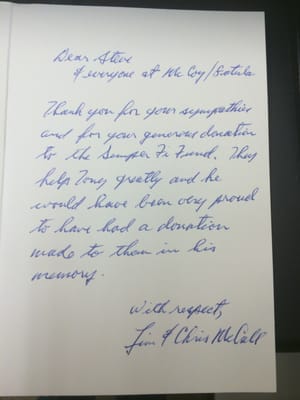 Dear Steve
& everyone at McCoy/
Thank you for your sympathies
and for your generous donation
to the Semper Fi Fund. They
help Tony greatly and he
would have been very proud
to have had a donation
made to them in his
memory.
With respect,
Jim & Chris McCall